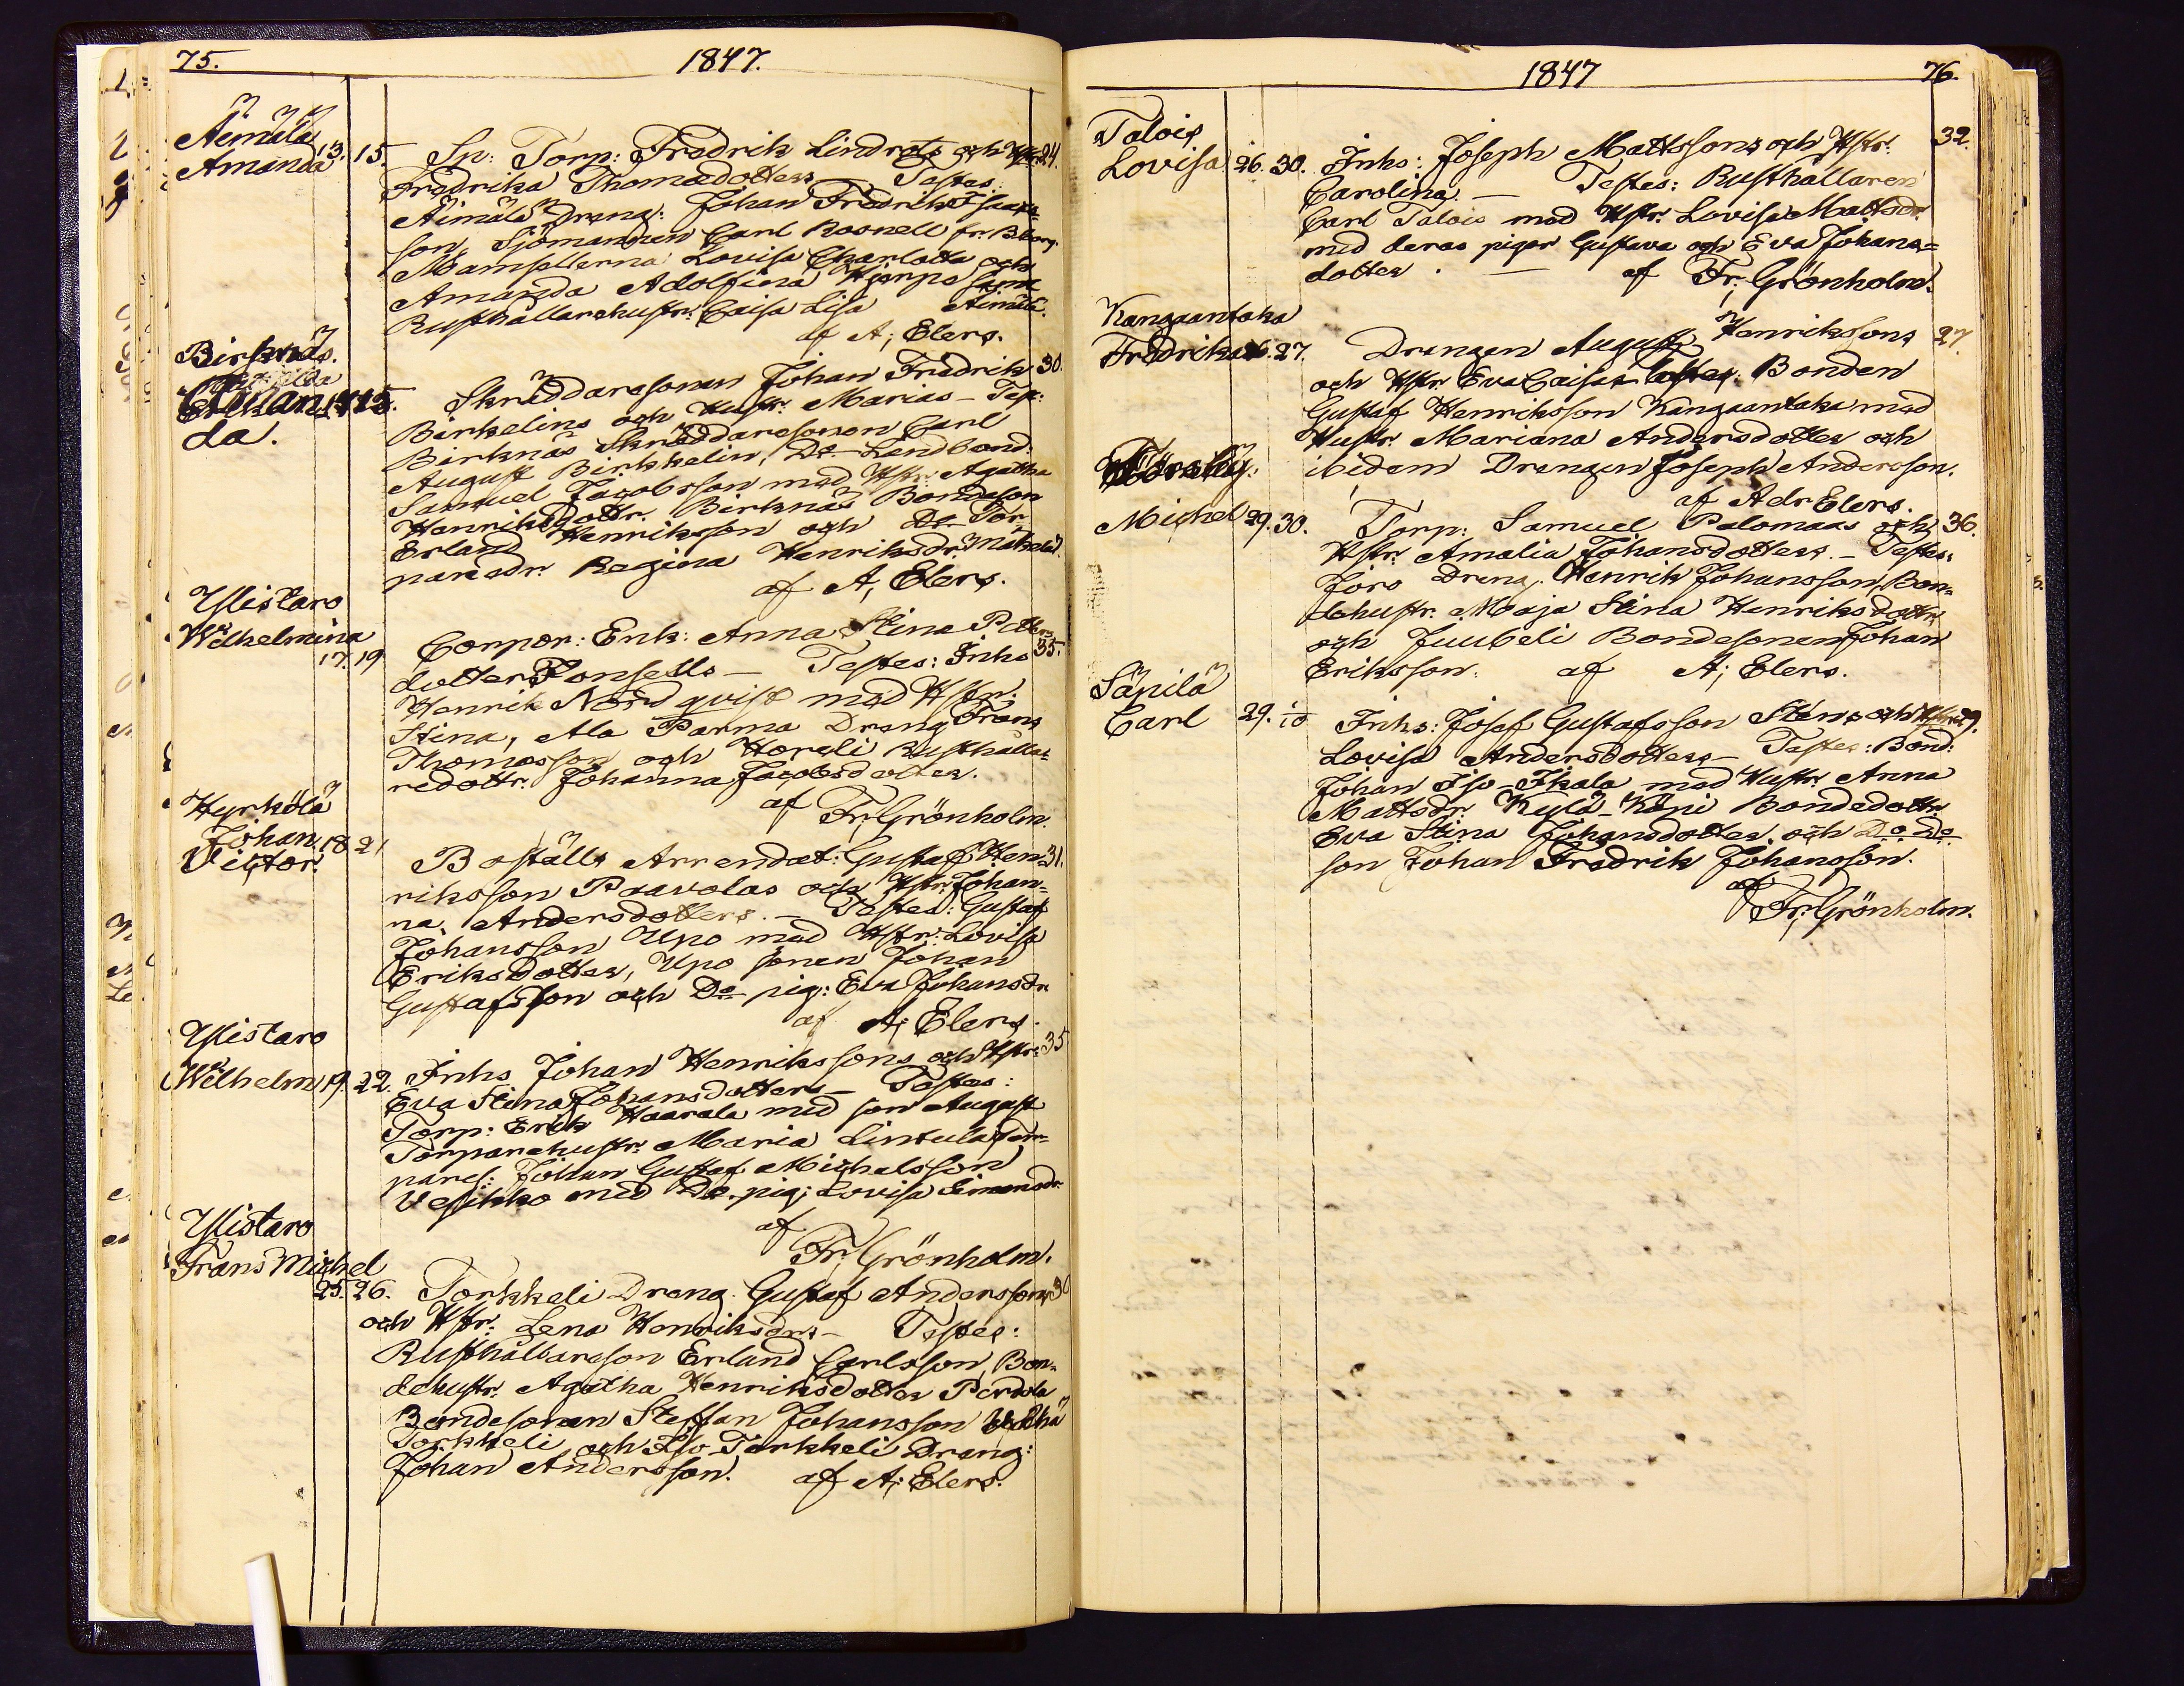 75.
1847.
Äimälä
Amanda 13. 15. Sn: Torp: Fredrik Lindrots och Hstr. 24.
Fredrika Thomædotters — Testes:
Äimälä Dräng: Johan Fredrik Isaaks=
son, Sjömannen Carl Rosnell fr. Bborg.
Mamsellerna Lovisa Charlotta och
Amanda Adolfina Hjerpe samt
Rusthållarehustr. Caisa Lisa Äimälä.
af A; Elers.
Birknäs.
Amanda. 15. Skräddaresonen Johan Fredrik 30.
Birkelins och Hustr. Marias — Test:
Birknäs Skräddaresonen Carl
August Birkkelin, Do Landbond.
Samuel Jacobsson med Hstr. Agatha
Henriksdottr. Birknäs Bondeson
Erland Henriksson och Do Tor
paredr. Regina Henriksdr. Mäkelä.
af A; Elers.
Ylistaro
Wilhelmina
17. 19 Corpor: Enk: Anna Stina Petters 35.
dotters Fonsells — Testes: Inhs
Henrik Nordqvist med Hstr.
Stina, Ala Parma Dräng Frans
Thomasson och Horeli Rusthålla=
redottr. Johanna Jacobsdotter.
af Fr; Grönholm.
Hyrkölä
Johan 18 21
Victor. Boställs Arrendat: Gustaf Hen= 31.
riksson Paavolas och Hstr. Johan=
na. Andersdotters. — Testes: Gustaf
Johansson Upo med Hstr: Lovisa
Eriksdotter, Upo sonen Johan
Gustafsson och Do pig: Eva Johansdr.
af A; Elers.
Ylistaro
Wilhelm 19. 22. Inhs Johan Henrikssons och Hstr: 35
Eva Stina Johansdotters — Testes:
Torp: Erik Haarala med son August
Torparehustr. Maria Lintula, Tor=
pares: Johan Gustaf Michelsson
Vesikko med Do. pig; Lovisa Simonsdr.
af
Fr; Grönholm.
Ylistaro
Frans Michel
25. 26. Torkkeli Dräng Gustaf Anderssons
och Hstr. Lena Henriksdrs — Testes:
Rusthållareson Erland Carlsson, Bon=
dehustr. Agatha Henriksdotter Perdola
Bondesonen Steffan Johansson Vähä
Torkkeli och Iso Torkkeli Dräng:
Johan Andersson. af A; Elers.
1847
76.
Talois
Lovisa 26. 30. Inhs: Joseph Mattssons och Hstr. 32.
Carolina. — Testes: Rusthållaren
Carl Talois med Hstr. Lovisa Mattsdr.
med deras pigor Gustava och Eva Johans=
dotter. — af Fr; Grönholm.
Kangaantaka
Fredrika 26. 27. Drängen August Henrikssons 27.
och Hstr Eva Caisas Testes. Bonden
Gustaf Henriksson Kangaantaka med
Hustr. Mariana Andersdotter och
ibidem Drängen Joseph Andersson.
af Adr Elers.
Michel 29. 30. Torp: Samuel Palomaas och 36.
Hstr. Amalia Johansdotters. — Testes:
Joro Dräng. Henrik Johansson, Bon=
dehustr. Maja Stina Henriksdottr.
och Juubeli Bondesonen Johan
Eriksson. af A; Elers.
Säpilä
Carl 29. 1/10 Inhs: Josef Gustafsson Stens och Hstr. 29.
Lovisa Andersdotters — Testes: Bond:
Johan Iso-Ikala med Hustr. Anna
Mattsdr. Kylä-Köni Bondedottr.
Eva Stina Johansdotter och Do Do
son Johan Fredrik Johansson.
af
Fr; Grönholm.